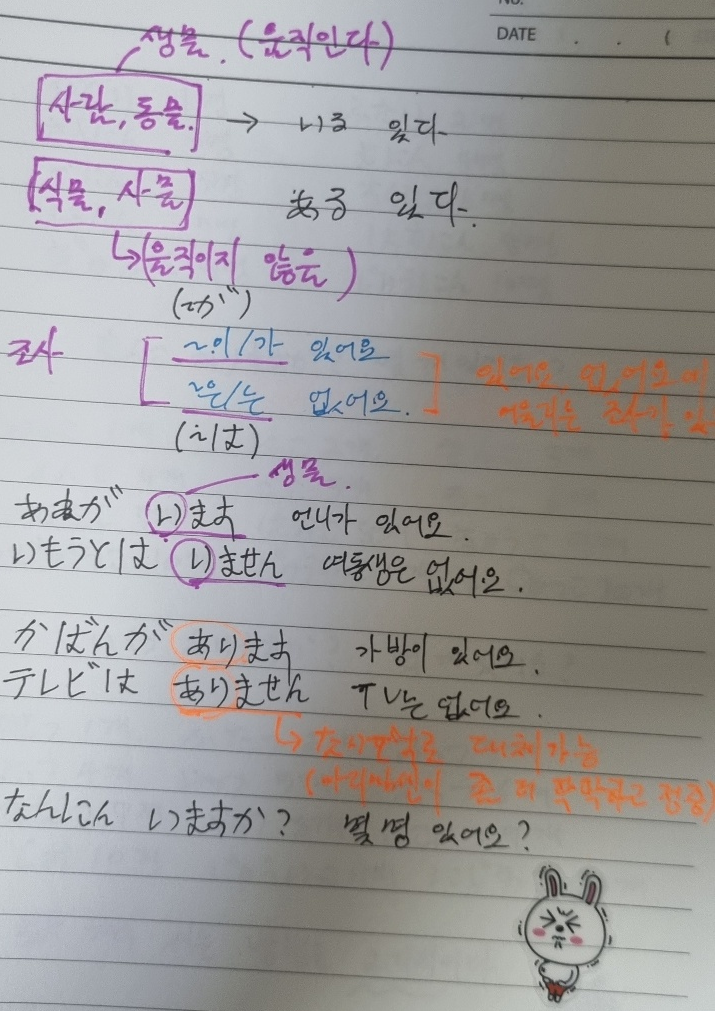 NO.
DATE . . (
생물. (움직인다)
사람, 동물. → いる 있다.
식물, 사물 ある 있다.
↳(움직이지 않음)
(が)
조사 ~이/가 있어요
~은/는 없어요. 있어요, 없어요에
(は) 어울리는 조사가 있
생물.
あねが います 언니가 있어요.
いもうとは いません 여동생은 없어요.
かばんが あります 가방이 있어요.
テレビは ありません TV는 없어요.
↳ 대체가능
(아리마셍이 좀 더 딱딱하고 정중)
なんにん いますか? 몇 명 있어요?